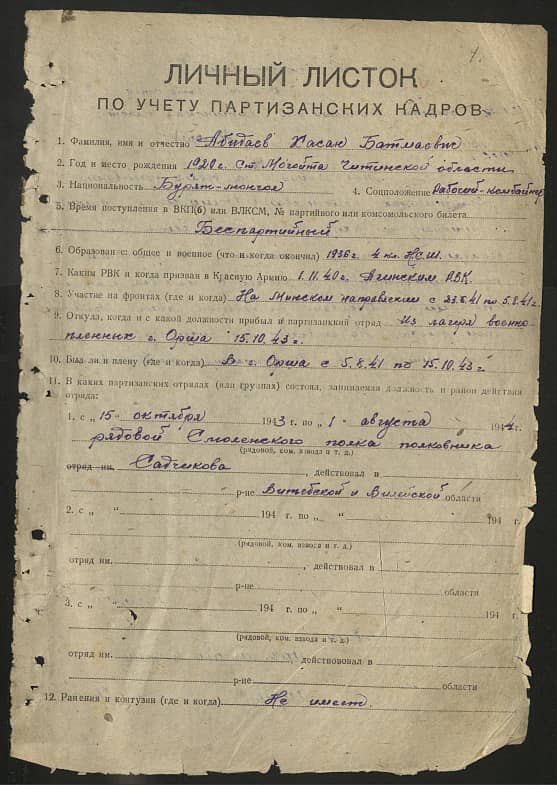 ЛИЧНЫЙ ЛИСТОК
ПО УЧЕТУ ПАРТИЗАНСКИХ КАДРОВ
1. Фамилия, имя и отчество Абидаев Хасан Батмаевич
2. Год и место рождения 1920 г. Ст. Могойта Читинской области
3. Национальность Бурят-монгол 4. Соцположение рабочий-комбайнер
5. Время поступления в ВКП(б) или ВЛКСМ, № партийного или комсомольского билета
Беспартийный
6. Образован с: общее и военное (что и когда окончил) 1936 г. 4 кл. Н.С.Ш.
7. Каким РВК и когда призван в Красную Армию 1.11.40 г. Агинским РВК
8. Участие на фронтах (где и когда) На Минском направлении с 23.6.41 по 5.8.41 г.
9. Откуда, когда и с какой должности прибыл в партизанский отряд Из лагеря военно-
пленных г. Орша 15.10.43 г.
10. Был ли в плену (где и когда) В г. Орша с 5.8.41 по 15.10.43 г
11. В каких партизанских отрядах (или группах) состоял, занимаемая должность и район действия
отряда:
1. с „ 15 " октября 1943 г. по „ 1 " августа 1944 г.
рядовой Смоленского полка полковника
(рядовой, ком. взвода и т. д.)
отряд им. Садчикова, действовал в
р-не Витебской и Вилейской области
2. с „ " 194 г. по „ " 194 г.
(рядовой, ком. взвода и т. д.)
отряд им. , действовал в
р-не области
3. с „ " 194 г. по „ " 194 г.
(рядовой, ком. взвода и т. д.)
отряд им. действовал в
р-не области
12. Ранения и контузии (где и когда) Не имеет.